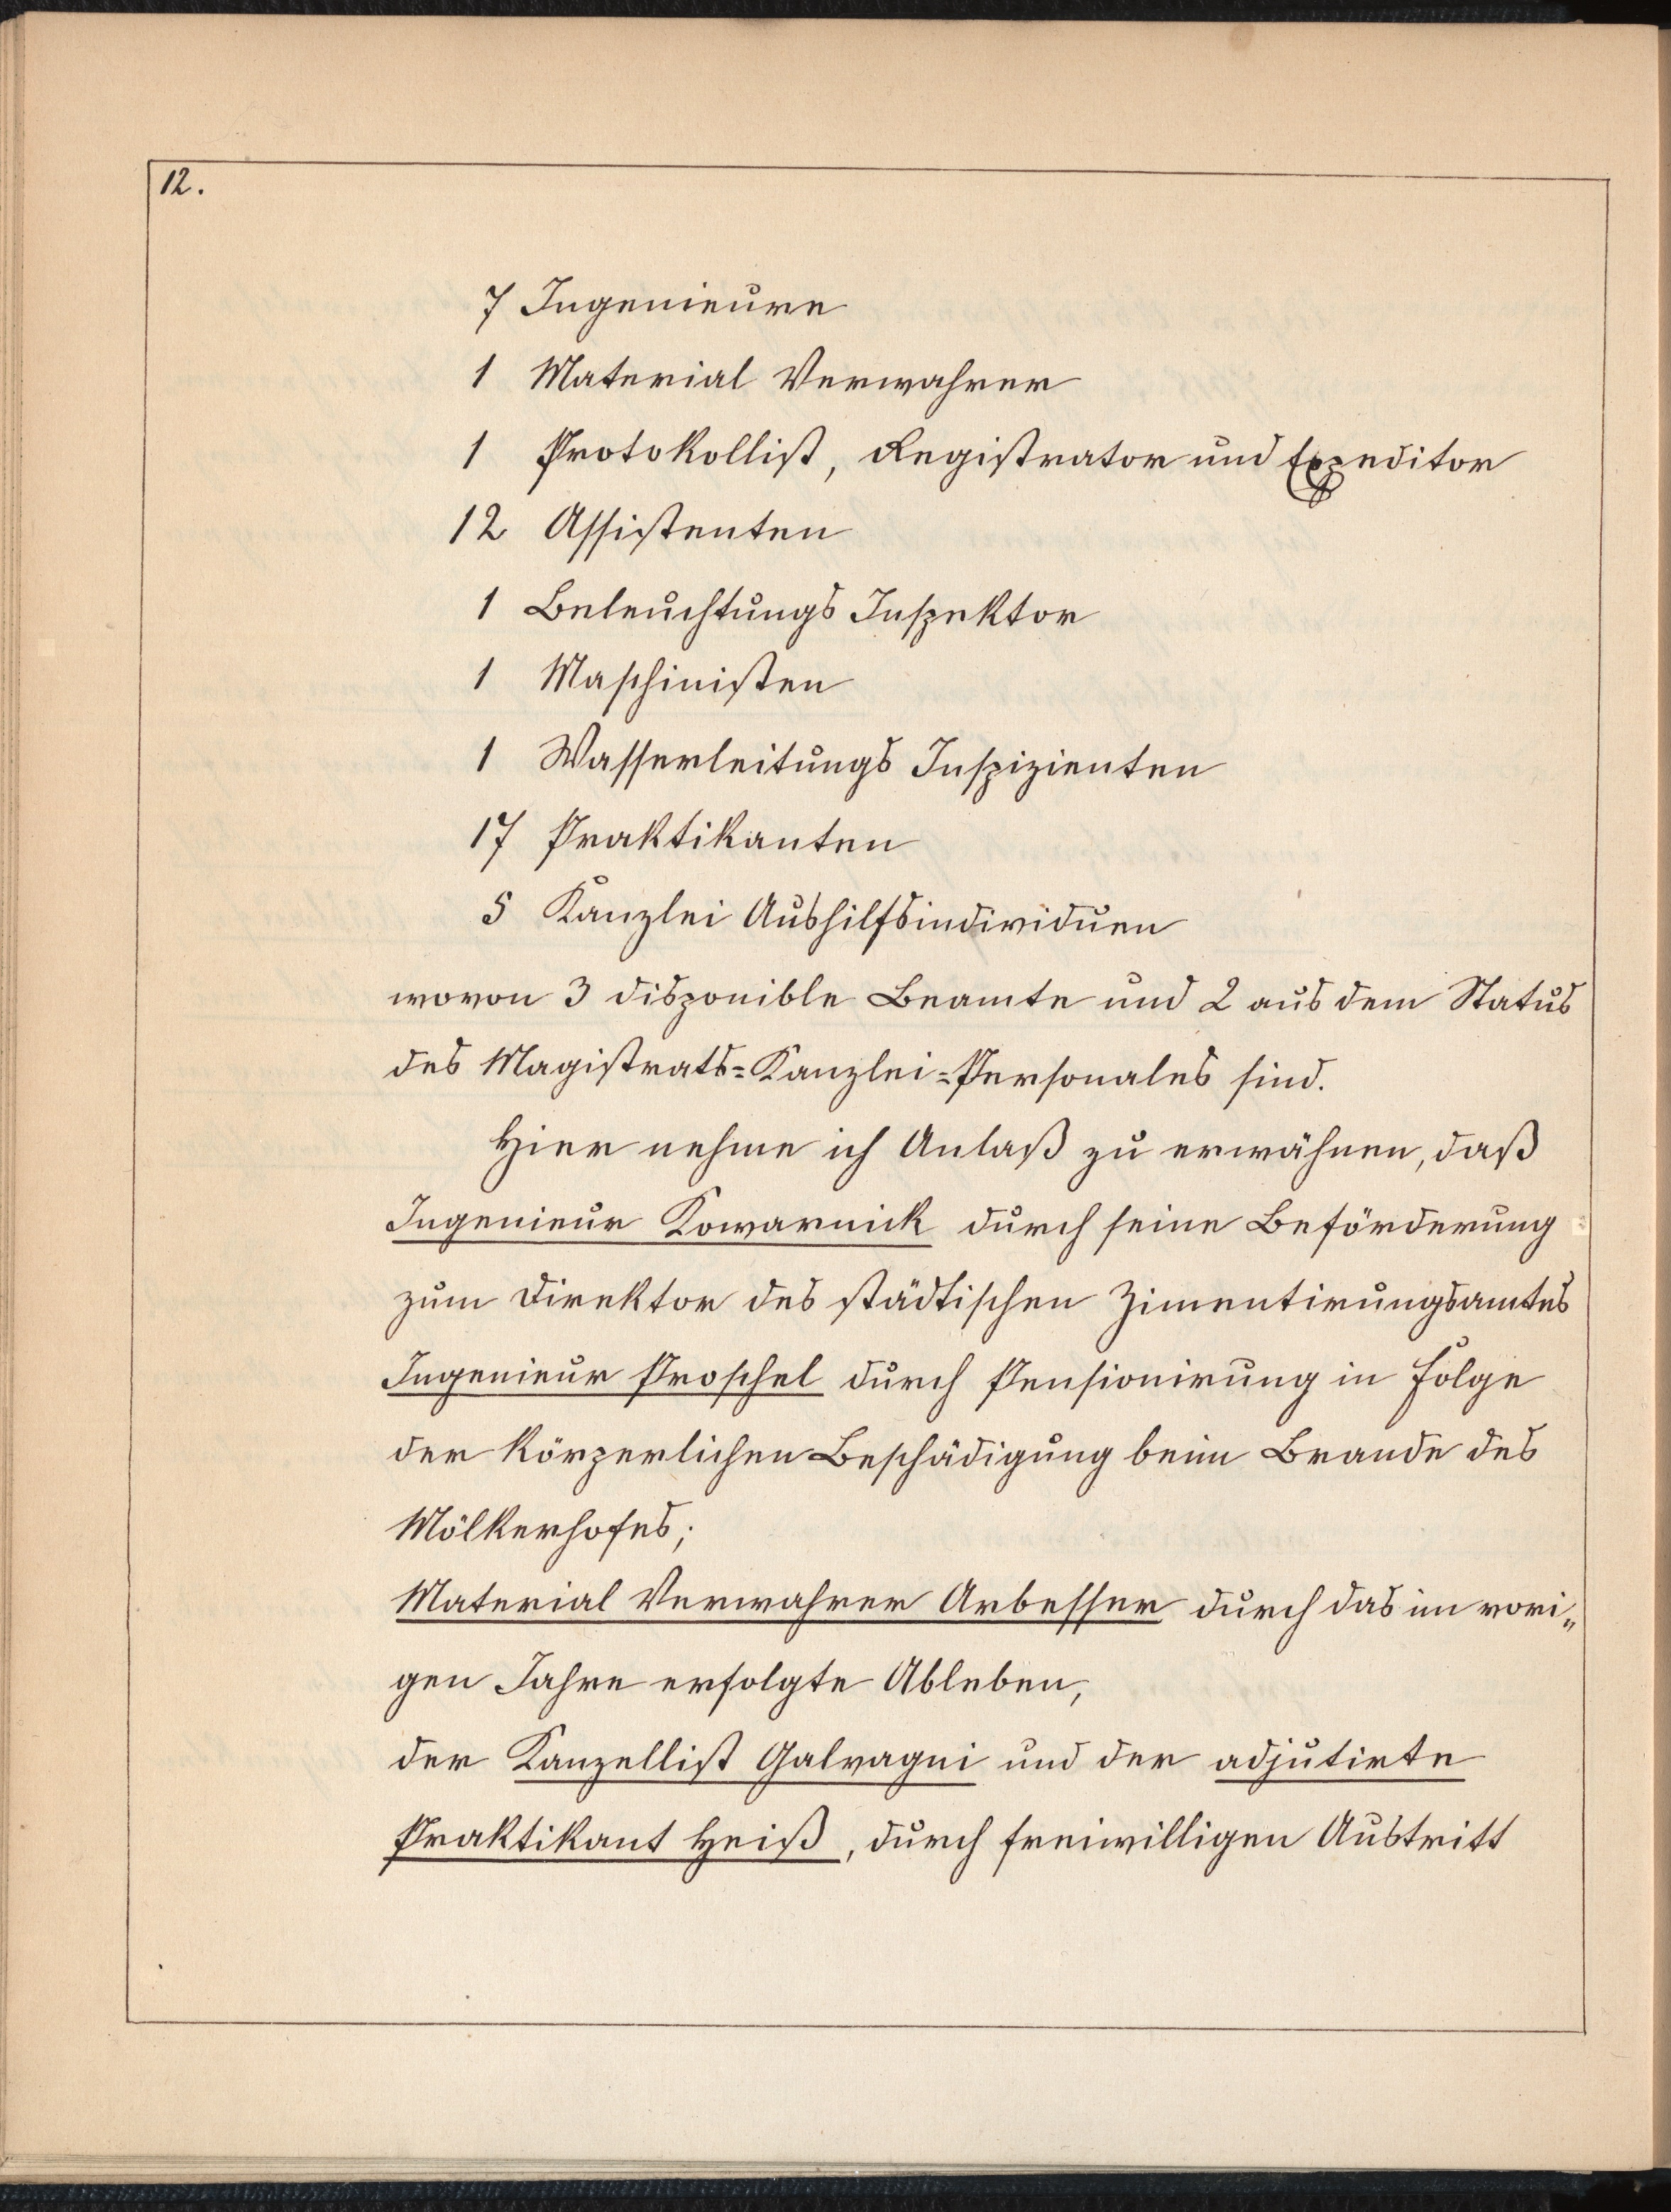 12.
7 Ingenieure
1 Material Verwahrer
1 Protokollist, Registrator und Expeditor
12 Assistenten
1 Beleuchtungs Inspektor
1 Maschinisten
1 Wasserleitungs Inspizienten
17 Praktikanten
5 Kanzlei Aushilfsindividuen
wovon 3 disponible Beamte und 2 aus dem Status
des Magistrats=Kanzlei=Personales sind.
Hier nehme ich Anlaß zu erwähnen, daß
Ingenieur Kowarnick durch seine Beförderung
zum Direktor des städtischen Zimentirungsamtes
Ingenieur Proschel durch Pensionirung in Folge
der körperlichen Beschädigung beim Brande des
Mölkerhofes;
Material Verwahrer Arbesser durch das im vori„
gen Jahre erfolgte Ableben,
der Kanzellist Galvagni und der adjutirte
Praktikant Heiß, durch freiwilligen Austritt